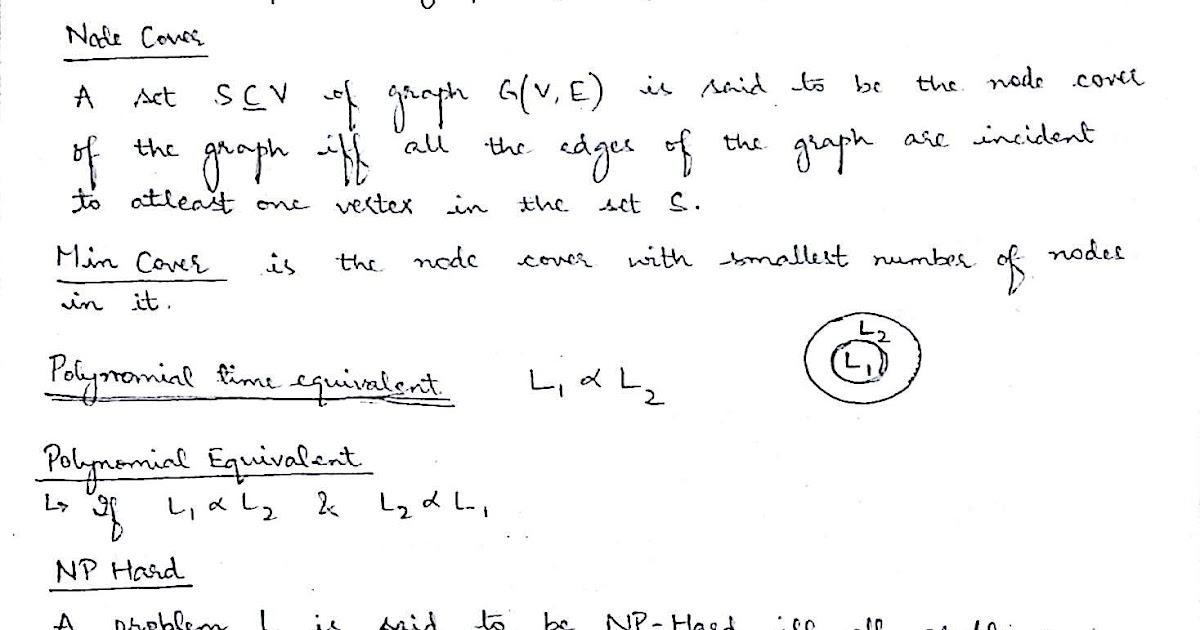 Node Cover
A set S ⊆ V of graph G(V, E) is said to be the node cover
of the graph iff all the edges of the graph are incident
to atleast one vertex in the set S.
Min Cover is the node cover with smallest number of nodes
in it.
Polynomial time equivalent L₁ ∝ L₂
L₂
L₁
Polynomial Equivalent
↳ If L₁ ∝ L₂ & L₂ ∝ L₁
NP Hard
A problem L is said to be NP-Hard iff all